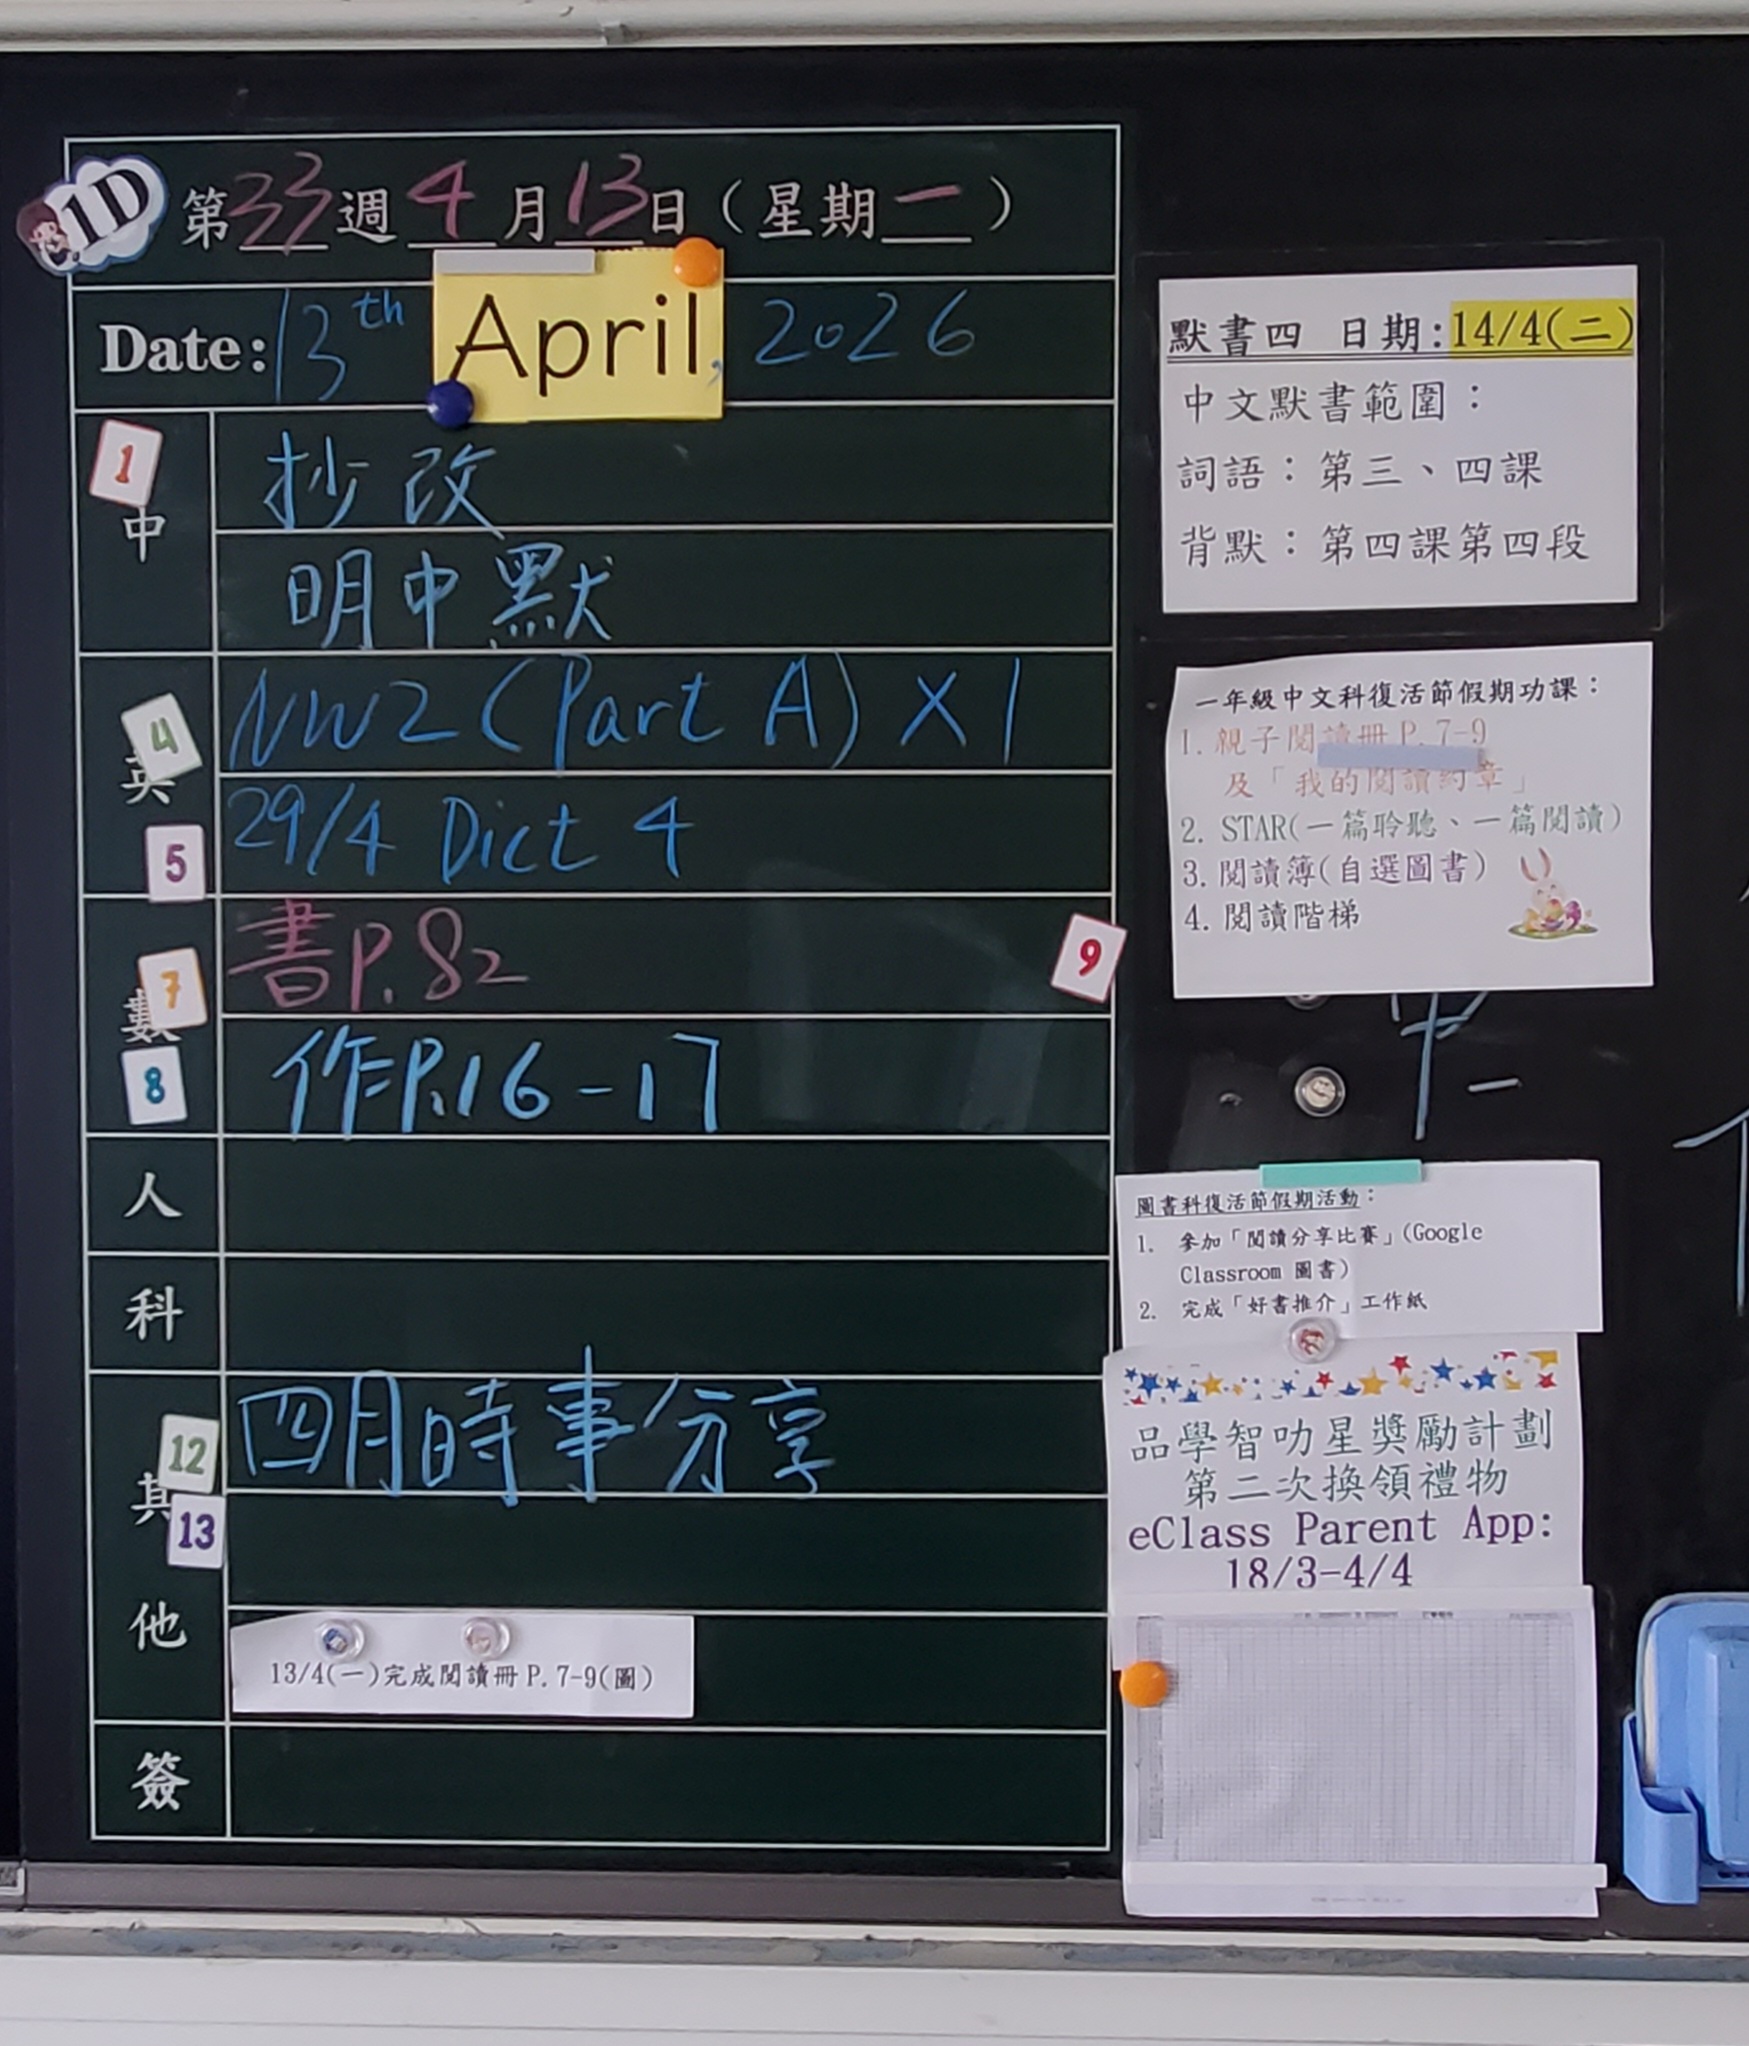 1D
第33週4月13日（星期一）
Date: 13th April, 2026
1
中
抄改
明中默
4
英
5
NW2 (Part A) X 1
29/4 Dict 4
7
數
8
書P.82
9
作P.16-17
人
科
12
其
13
他
四月時事分享
13/4(一)完成閱讀冊 P.7-9(圖)
簽
默書四 日期:14/4(二)
中文默書範圍：
詞語：第三、四課
背默：第四課第四段
一年級中文科復活節假期功課：
1. 親子閱讀冊 P.7-9
及「我的閱讀約章」
2. STAR(一篇聆聽、一篇閱讀)
3. 閱讀簿(自選圖書)
4. 閱讀階梯
圖書科復活節假期活動：
1. 參加「閱讀分享比賽」(Google
Classroom 圖書)
2. 完成「好書推介」工作紙
品學智叻星獎勵計劃
第二次換領禮物
eClass Parent App:
18/3-4/4